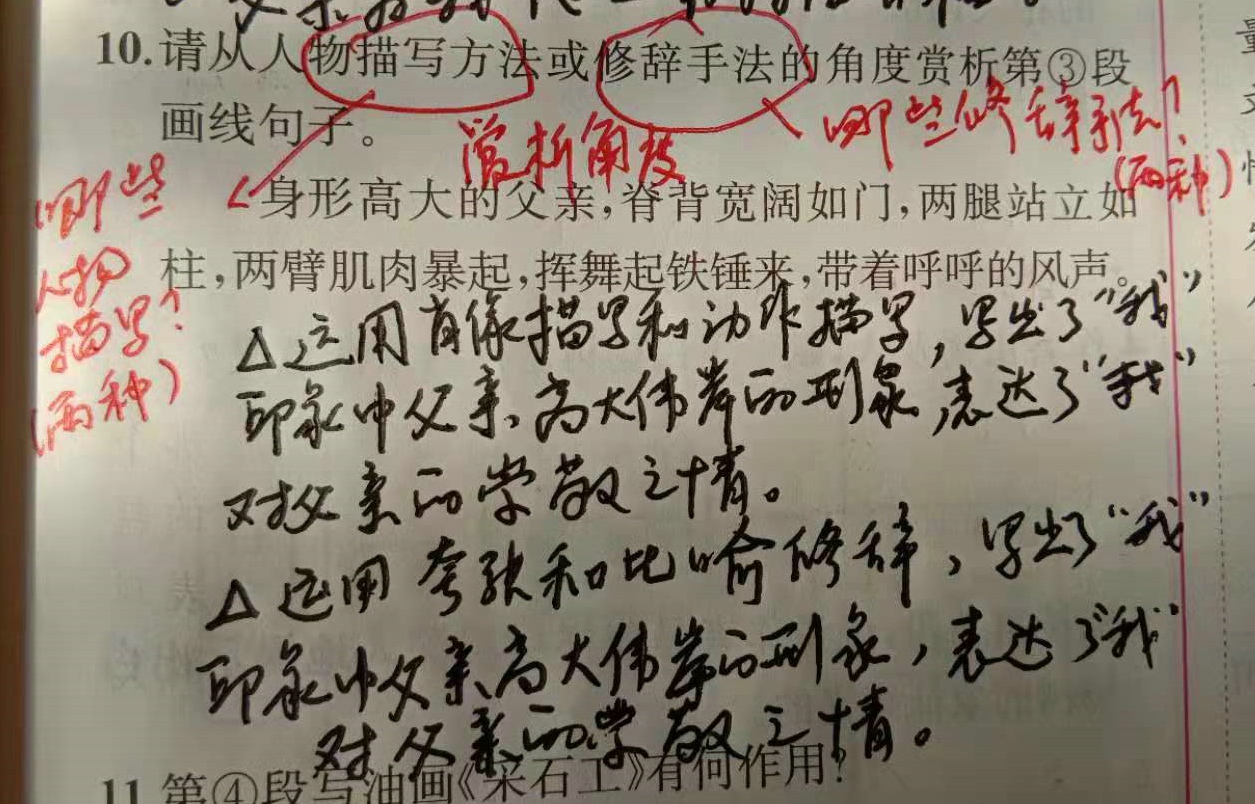 10.请从人物描写方法或修辞手法的角度赏析第③段
画线句子。
赏析角度
哪些修辞手法?
(两种)
哪些
人物
描写?
(两种)
身形高大的父亲,脊背宽阔如门,两腿站立如
柱,两臂肌肉暴起,挥舞起铁锤来,带着呼呼的风声。
△运用肖像描写和动作描写,写出了“我”
印象中父亲高大伟岸的形象,表达了“我”
对父亲的崇敬之情。
△运用夸张和比喻修辞,写出了“我”
印象中父亲高大伟岸的形象,表达了“我”
对父亲的崇敬之情。
11.第④段写油画《采石工》有何作用?